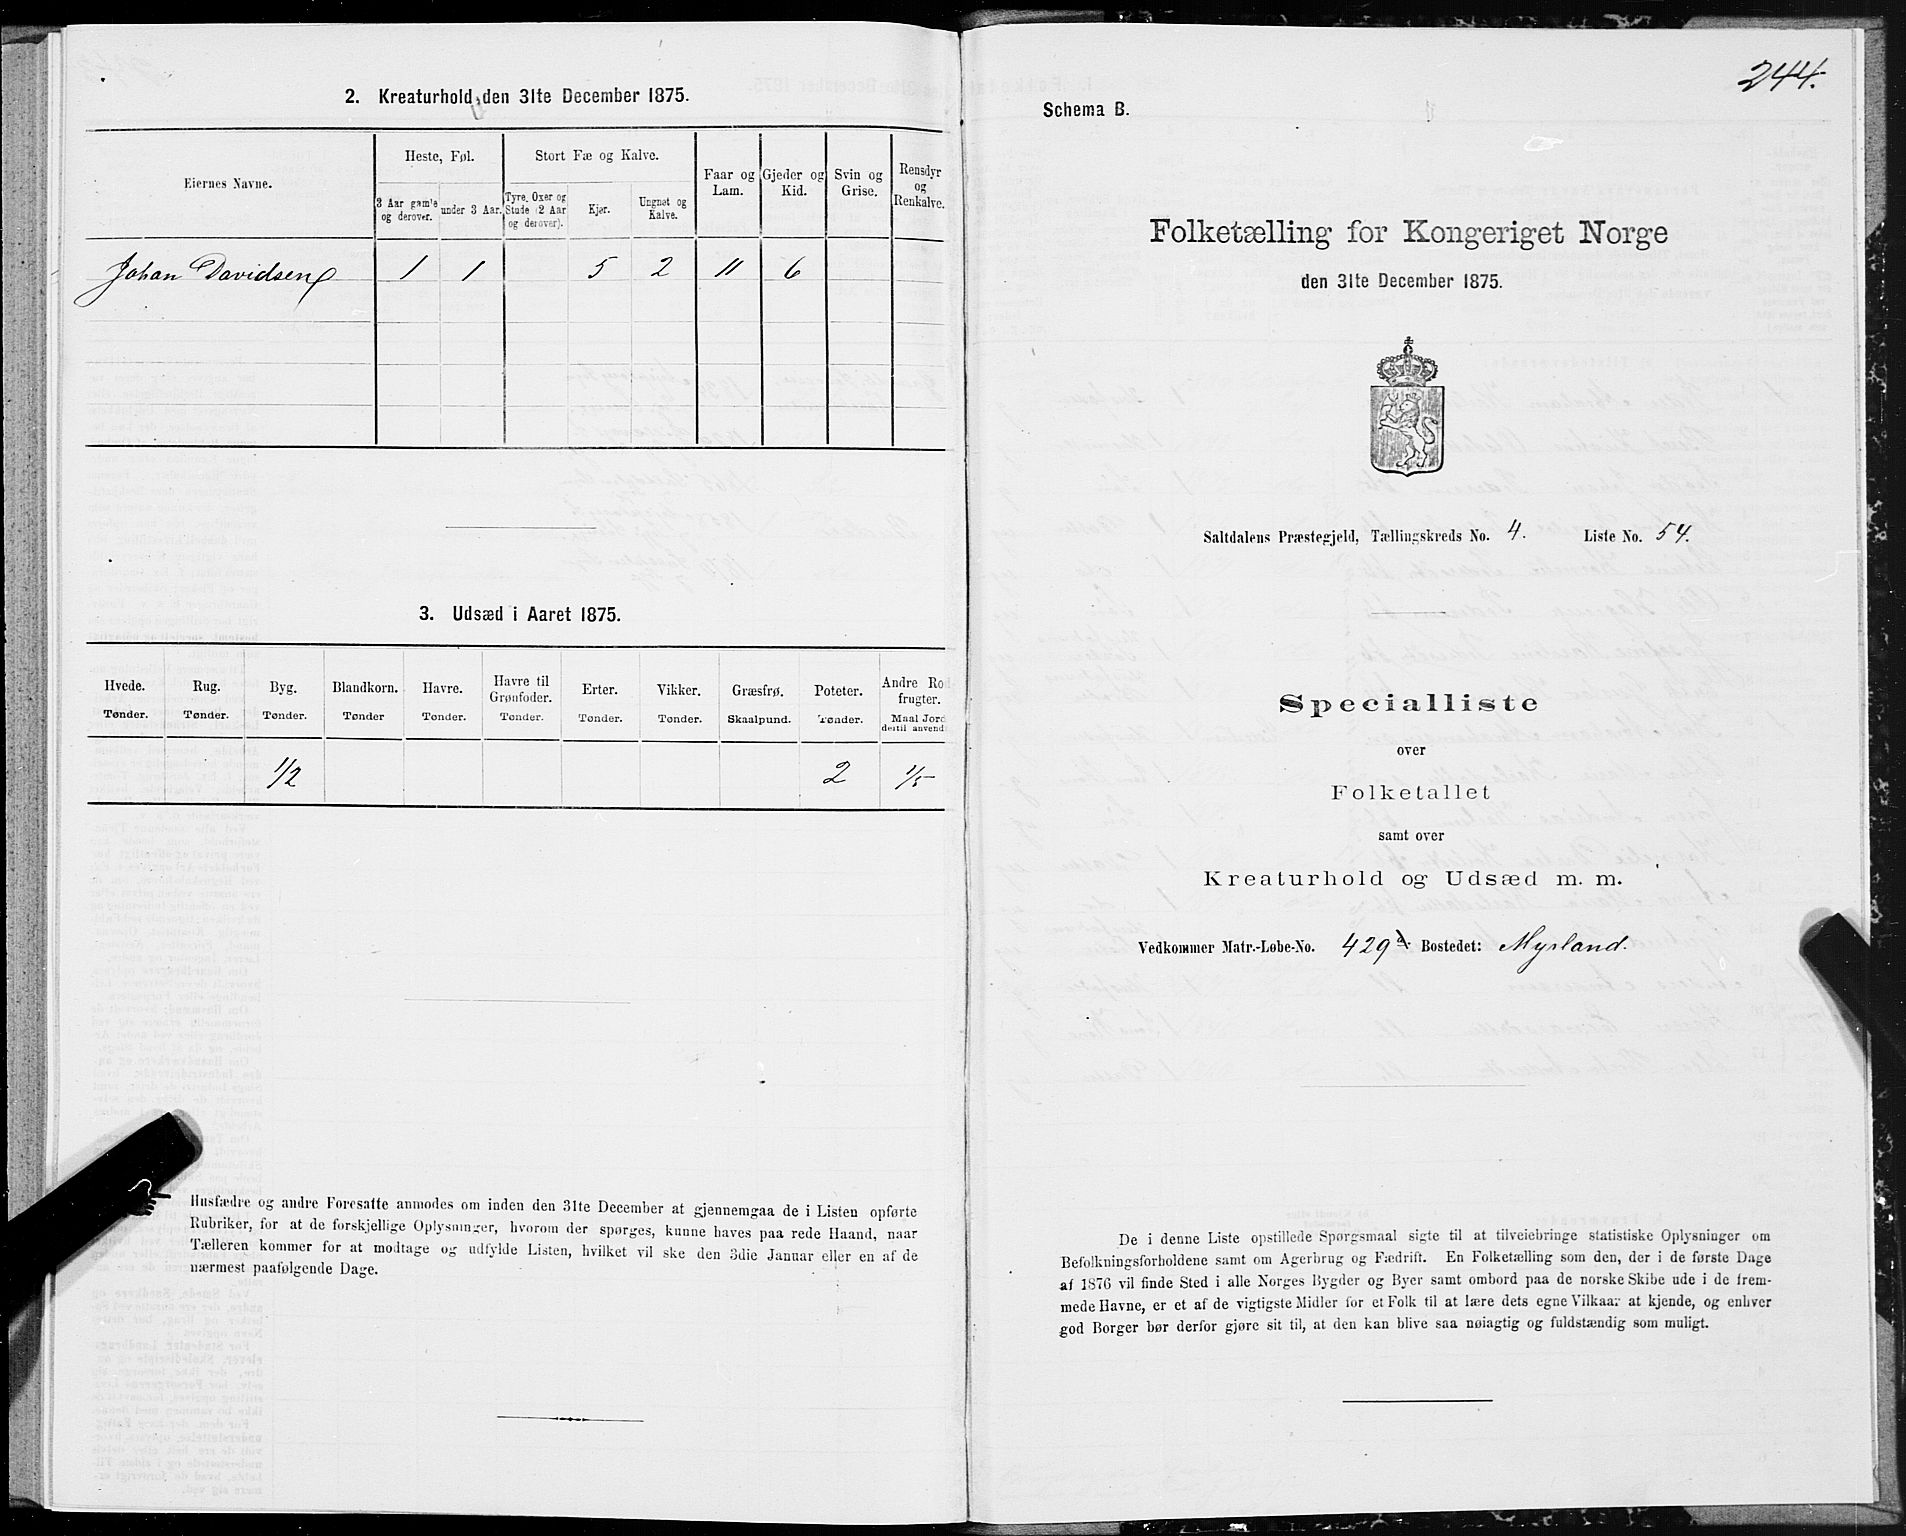 2. Kreaturhold den 31te December 1875.
Eiernes Navne.
Heste, Føl.
Stort Fæ og Kalve.
Faar og Lam.
Gjeder og Kid.
Svin og Grise.
Rensdyr og Renkalve.
3 Aar gamle og derover.
under 3 Aar.
Tyre, Oxer og Stude (2 Aar og derover).
Kjør.
Ungnøt og Kalve.
Johan Davidsen 1 1 5 2 11 6
3. Udsæd i Aaret 1875.
Hvede. Rug. Byg. Blandkorn. Havre. Havre til Grønfoder. Erter. Vikker. Græsfrø. Poteter. Andre Rodfrugter.
Tønder. Tønder. Tønder. Tønder Tønder. Tønder. Tønder. Tønder. Skaalpund. Tønder. Maal Jord dertil anvendt
1/2 2 1/5
Husfædre og andre Foresatte anmodes om inden den 31te December at gjennemgaa de i Listen opførte
Rubriker, for at de forskjellige Oplysninger, hvorom der spørges, kunne haves paa rede Haand, naar
Tælleren kommer for at modtage og udfylde Listen, hvilket vil ske den 3die Januar eller en af de
nærmest paafølgende Dage.
244.
Schema B.
Folketælling for Kongeriget Norge
den 31te December 1875.
Saltdalens Præstegjeld, Tællingskreds No. 4. Liste No. 54.
Specialliste
over
Folketallet
samt over
Kreaturhold og Udsæd m. m.
Vedkommer Matr.-Løbe-No. 429 Bostedet: Myrland.
De i denne Liste opstillede Spørgsmaal sigte til at tilveiebringe statistiske Oplysninger om
Befolkningsforholdene samt om Agerbrug og Fædrift. En Folketælling som den, der i de første Dage
af 1876 vil finde Sted i alle Norges Bygder og Byer samt ombord paa de norske Skibe ude i de frem-
mede Havne, er et af de vigtigste Midler for et Folk til at lære dets egne Vilkaar at kjende, og enhver
god Borger bør derfor gjøre sit til, at den kan blive saa nøiagtig og fuldstændig som muligt.